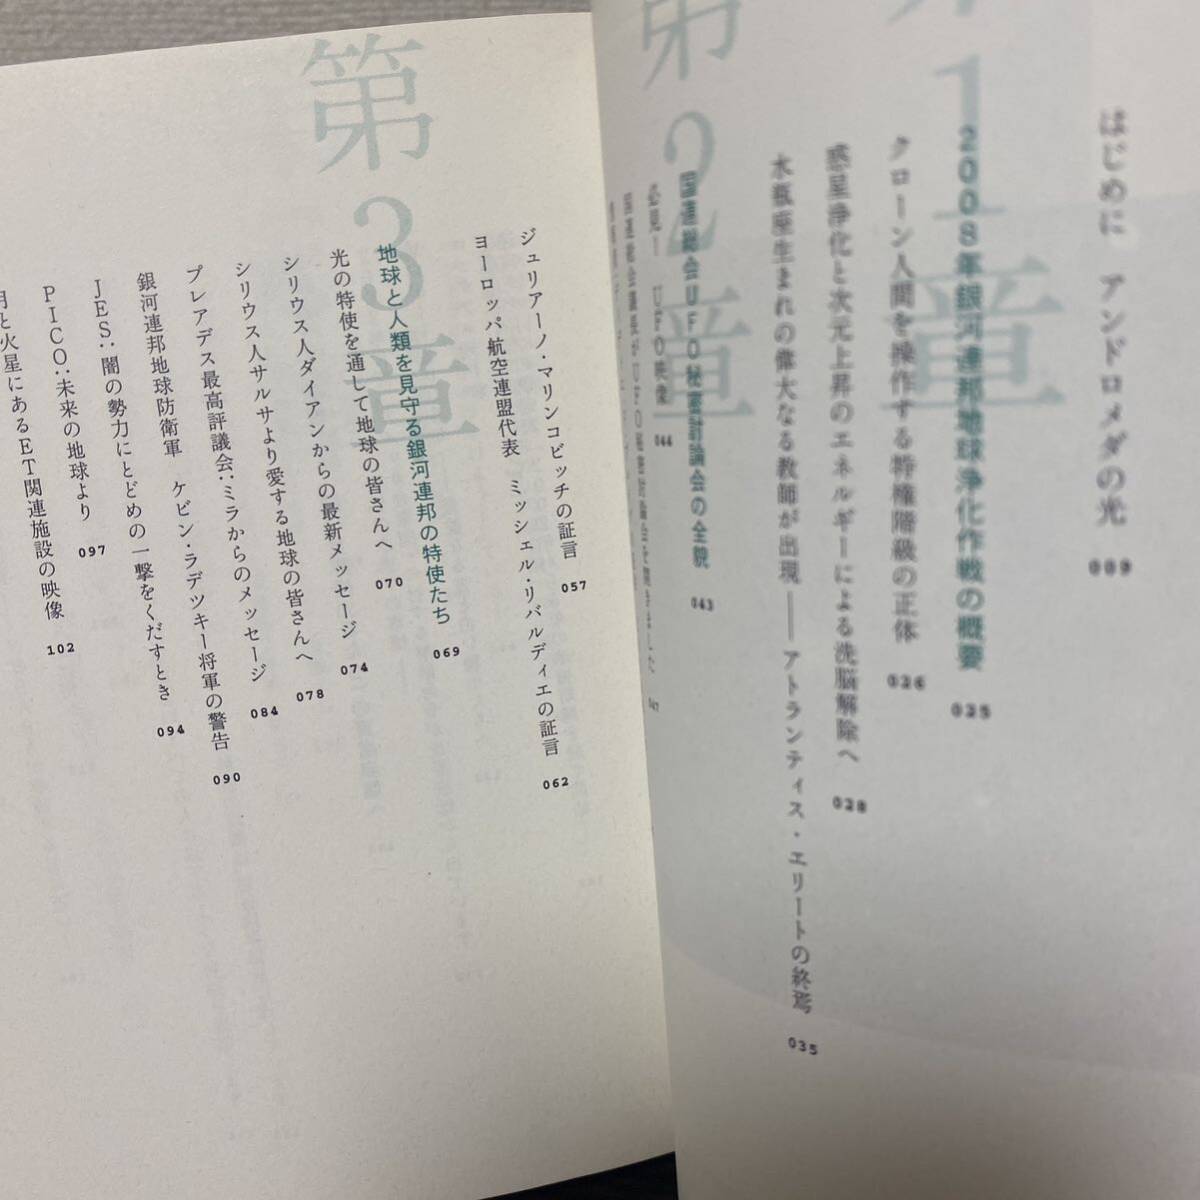 はじめに　アンドロメダの光 009
第1章
2008年銀河連邦地球浄化作戦の概要 025
クローン人間を操作する特権階級の正体 026
惑星浄化と次元上昇のエネルギーによる洗脳解除へ 028
水瓶座生まれの偉大なる教師が出現——アトランティス・エリートの終焉 035
第2章
国連総会UFO秘密討論会の全貌 043
必見！　UFO映像 044
047
ジュリアーノ・マリンコビッチの証言 057
ヨーロッパ航空連盟代表　ミッシェル・リバルディエの証言 062
第3章
地球と人類を見守る銀河連邦の特使たち 069
光の特使を通して地球の皆さんへ 070
シリウス人ダイアンからの最新メッセージ 074
シリウス人サルサより愛する地球の皆さんへ 078
プレアデス最高評議会：ミラからのメッセージ 084
銀河連邦地球防衛軍　ケビン・ラデツキー将軍の警告 090
JES：闇の勢力にとどめの一撃をくだすとき 094
PICO：未来の地球より 097
月と火星にあるET関連施設の映像 102